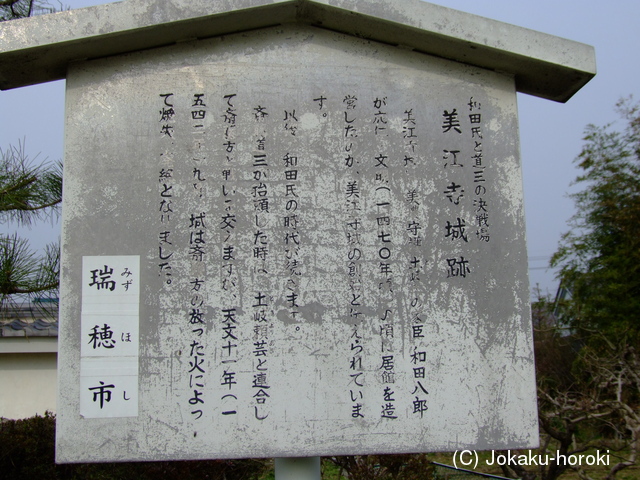 和田氏と道三の決戦場
美江寺城跡
美江寺城 美 守護土岐 の 臣・和田八郎
が応仁・文明(一四七〇年 の頃に居館を造
営したのが、美江寺城の創 と えられていま
す。
以後 和田氏の時代が続きます。
斎 道三が抬頭した時は、土岐頼芸と連合し
て斎 方と戦いを交えますが、天文十一年(一
五四二 九 城は斎 方の放った火によっ
て焼失 絵となりました。
瑞穂市
みずほし
(C) Jokaku-horoki